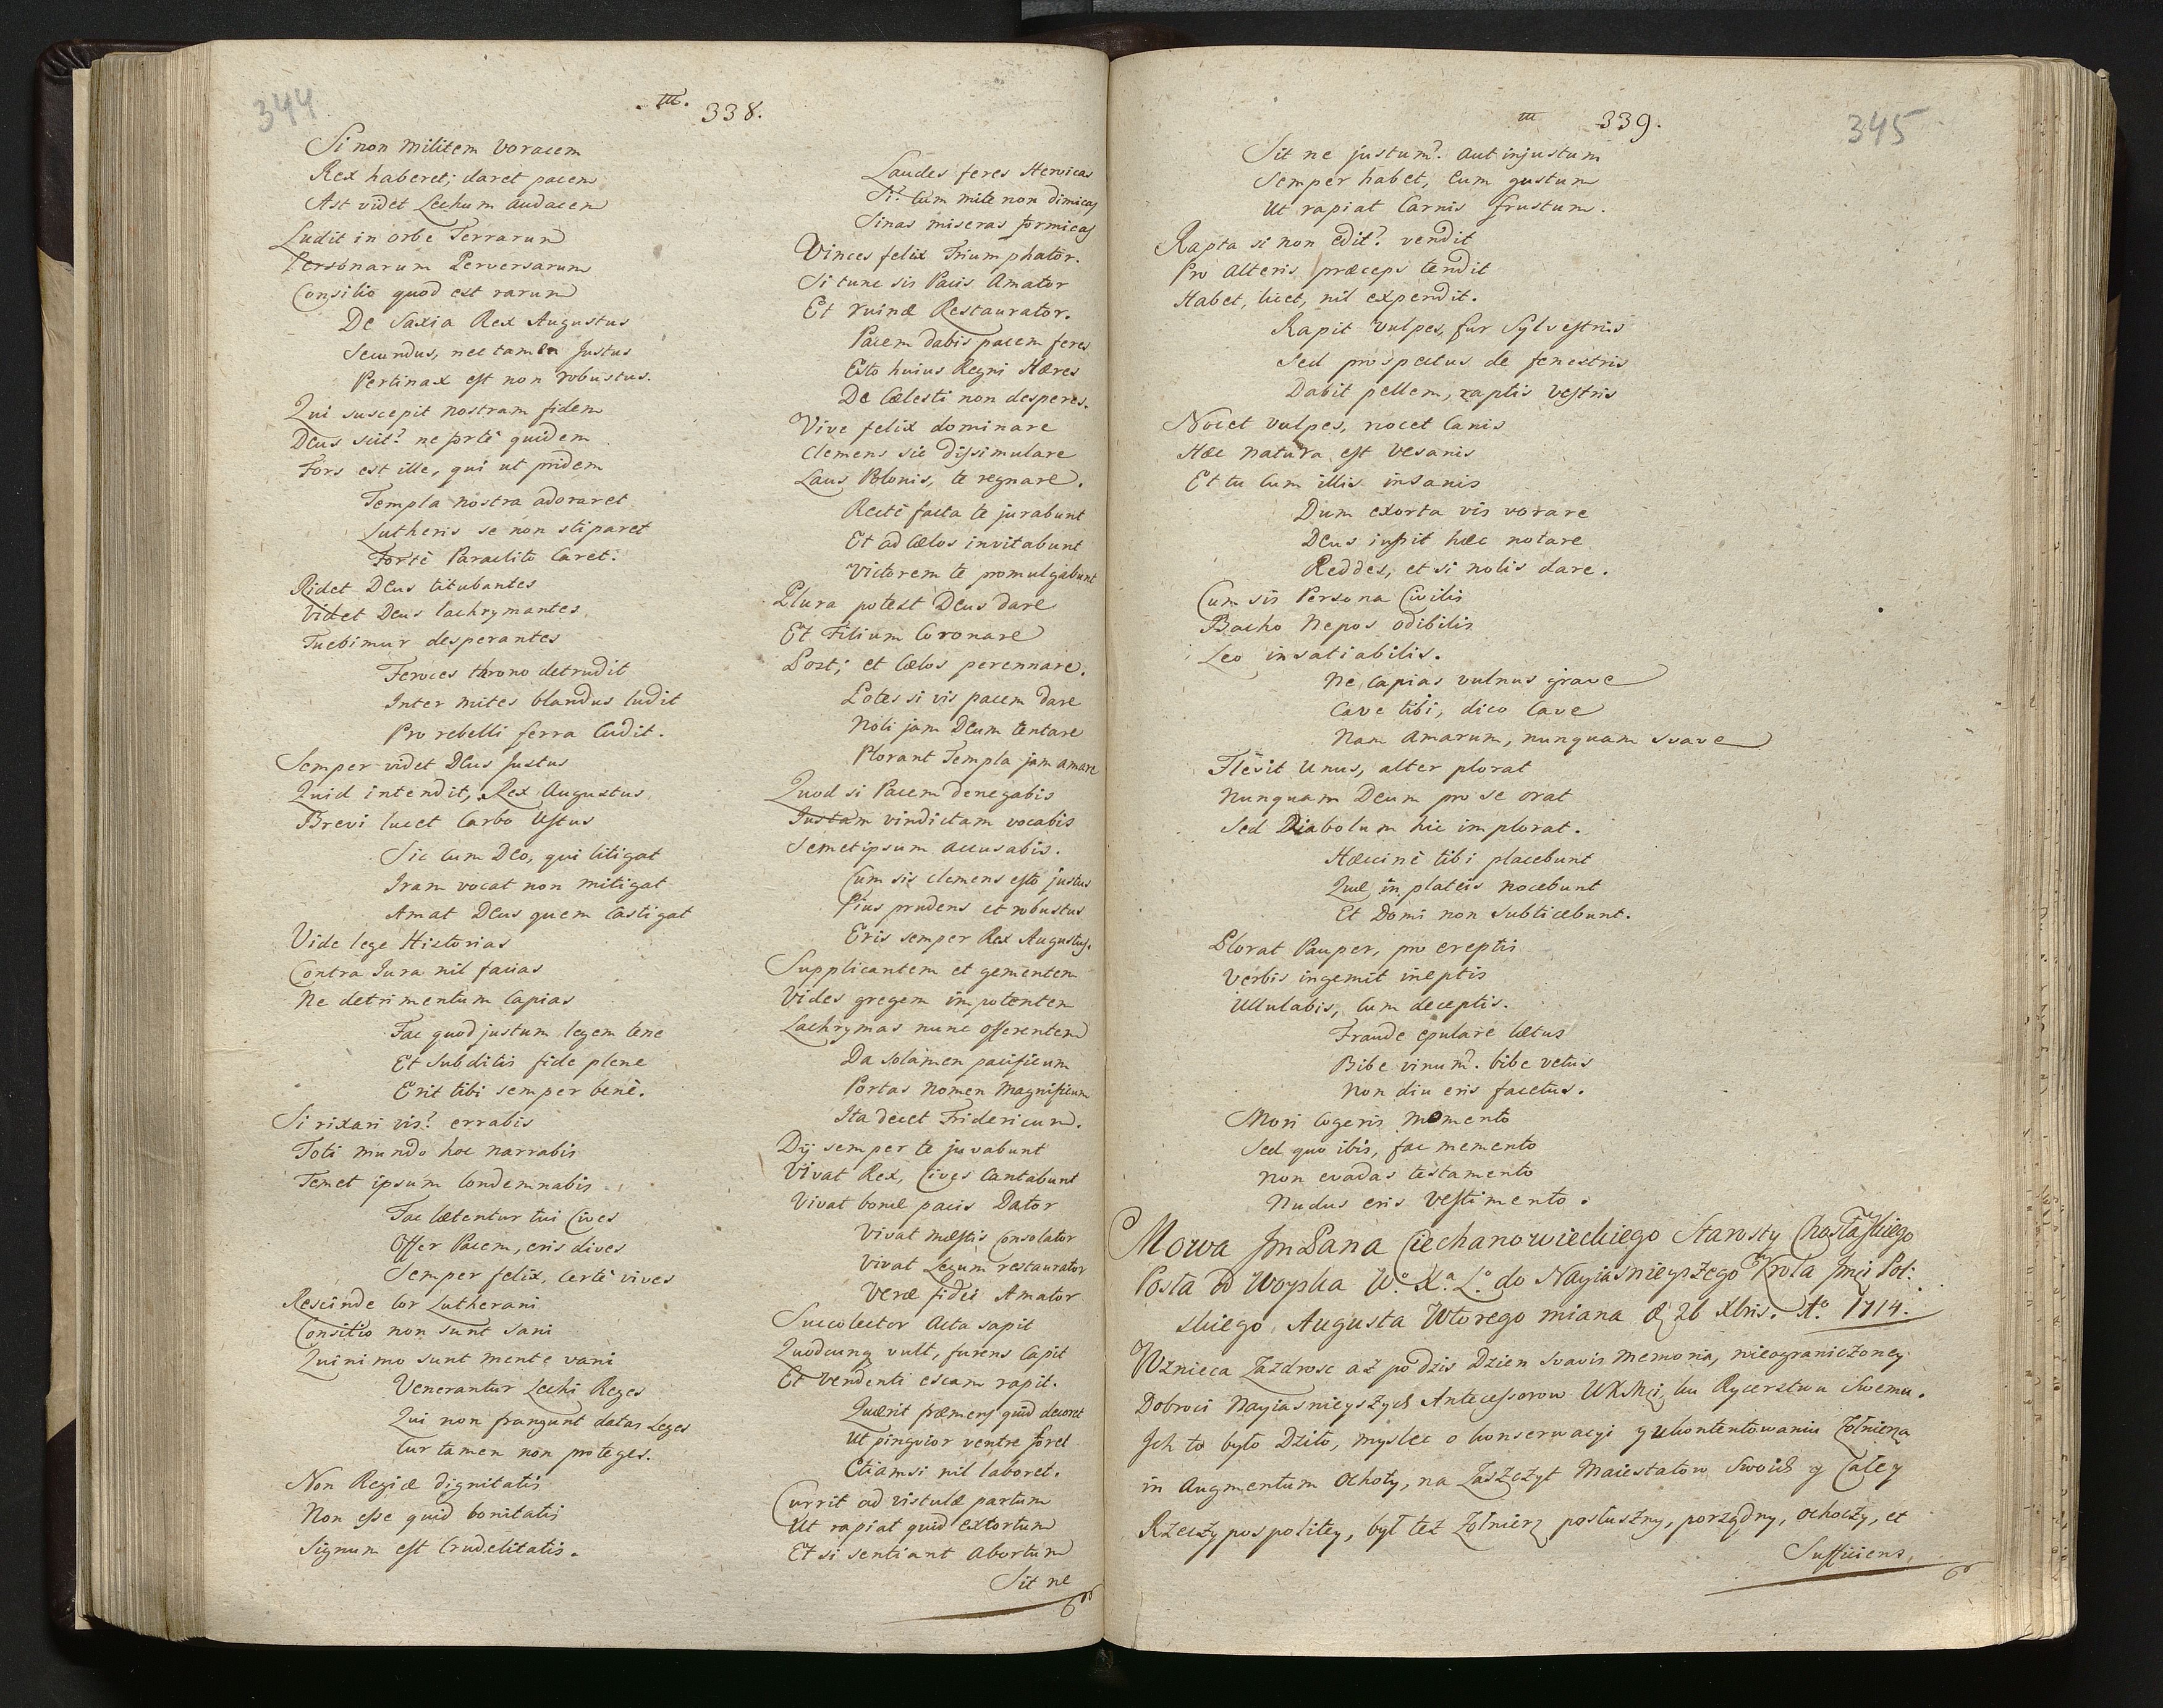 344
m. 338.
Si non Militem voracem
Rex haberet; daret pacem
Ast videt Lechum audacem
Ludit in orbe Terrarum
Personarum Perversarum
Consilio quod est rarum
De Saxia Rex Augustus
Secundus, nec tamen Justus
Pertinax est non robustus.
Qui suscepit nostram fidem
Deus scit? ne fortè quidem
Fors est ille, qui ut pridem
Templa nostra adoraret
Lutheris se non stiparet
Fortè Paraclito Caret.
Ridet Deus titubantes
Videt Deus lachrymantes
Tuebimur desperantes
Feroces throno detrudit
Inter mites blandus ludit
Pro rebelli ferra Cudit.
Semper videt Deus Justus
Quid intendit, Rex Augustus
Brevi lucet Carbo Ustus
Sic Cum Deo, qui litigat
Iram vocat non mitigat
Amat Deus quem Castigat
Vide lege Historias
Contra Jura nil facias
Ne detrimentum Capias
Fac quod justum legem tene
Et Subditis fide plene
Erit tibi semper benè.
Si rixari vis? errabis
Toti mundo hoc narrabis
Temet ipsum Condemnabis
Fac lætentur tui Cives
Offer Pacem, eris dives
Semper felix, Certè vives
Rescinde Cor Lutherani
Consilio non sunt Sani
Quinimo sunt Mente vani
Venerantur Lechi Reges
Qui non frangunt datas Leges
Cur tamen non proteges.
Non Regiæ dignitatis
Non esse quid bonitatis
Signum est Crudelitatis.
Laudes feres Heroicas
Si? Cum mite non dimicas
Sinas miseras formicas
Vinces felix Triumphator.
Si tunc sis Pacis Amator
Et ruinæ Restaurator.
Pacem dabis pacem feres
Esto huius Regni Hæres
De Cælesti non desperes.
Vive felix dominare
Clemens sic dissimulare
Laus Polonis, te regnare.
Rectè facta te jurabunt
Et ad Cælos invitabunt
Victorem te promulgabunt
Plura potest Deus dare
Et Filium Coronare
Post; et Cælos perennare.
Potes si vis pacem dare
Noli jam Deum tentare
Plorant Templa jam amare
Quod si Pacem denegabis
Justam vindictam vocabis
Semetipsum accusabis.
Cum sis Clemens esto justus
Pius prudens et robustus
Eris semper Rex Augustus.
Supplicantem et gementem
Vides gregem impotentem
Lachrymas nunc offerentem
Da solamen pacificum
Portas Nomen Magnificum
Ita decet Fridericum.
Dij semper te juvabunt
Vivat Rex, Cives Cantabunt
Vivat bonæ pacis Dator
Vivat mæstis Consolator
Vivat Legum restaurator
Veræ fidei Amator
Succolector Acta sapit
Quodcunq vult, furens Capit
Et Vendenti escam rapit.
Quærit præmens quid decoret
Ut pingvior ventre foret
Etiamsi nil laboret.
Currit ad vistulæ partum
Ut rapiat quid Extortum
Et si sentiant Abortum
Sit ne
m 339.
345
Sit ne justum? aut injustum
Semper habet, Cum gustum
Ut rapiat Carnis frustum.
Rapta si non edit? vendit
Pro Alteris præceps tendit
Habet, licet, nil expendit.
Rapit Vulpes, fur Sylvestris
Sed prospectus de fenestris
Dabit pellem, raptis vestris
Nocet vulpes, nocet Canis
Hæc Natura est Vesanis
Et tu Cum illis insanis
Dum exorta vis vorare
Deus iussit hæc notare
Reddes, et si nolis dare.
Cum sis Persona Civilis
Bacho Nepos odibilis
Leo insatiabilis.
Ne Capias vulnus grave
Cave tibi, dico Cave
Nam Amarum, nunquam svave
Flevit Unus, alter plorat
Nunquam Deum pro se orat
Sed Diabolum hic implorat.
Hæccinè tibi placebunt
Quæ in plateis nocebunt
Et Domi non subticebunt.
Plorat Pauper, pro ereptis
Verbis ingemit ineptis
Ullulabis, Cum deceptis.
Fraude epulare lætus
Bibe vinum? bibe vetus
Non diu eris facetus.
Mori Cogeris Momento
Sed quo ibis, fac memento
Non evadas testamento
Nudus eris Vestimento.
Mowa Jm Pana Ciechanowieckiego Starosty
Posła od Woyska Wo. Xa. Lo. do Nayiasnieyszego Krola Jmci Pol:
skiego Augusta Wtorego miana d. 26 Xbris. Ao. 1714.
Wznieca Zazdrosc aż po dzis Dzien Svavis Memoria, nieograniczoney
Dobroci Nayiasnieyszych Antecessorow WKMci, ku Rycerstwu Swemu.
Ich to było Dziło, myslec o konserwacyi y ukontentowaniu Żołnierza
in Augmentum Ochoty, na Zaszczyt Maiestatow Swoich y Całey
Rzeczypospolitey, był też Żołnierz posłuszny, porządny, ochoczy, et
Sufficiens,